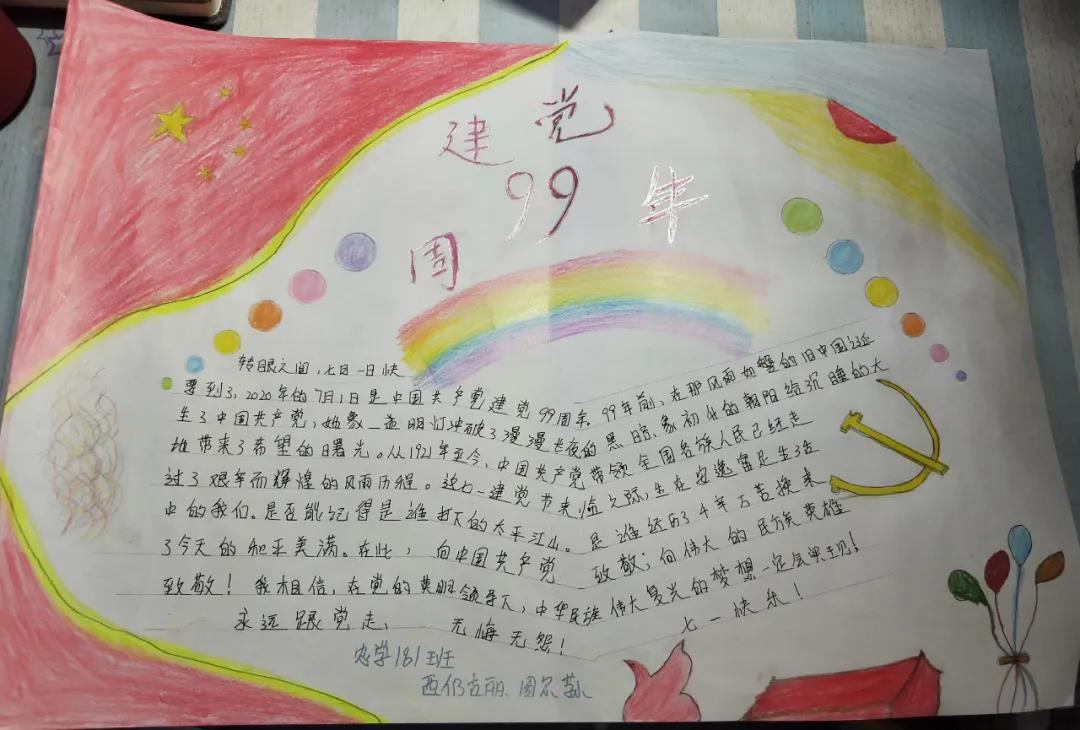 建党
99
周年
转眼之间,七月一日快
要到了,2020年的7月1日是中国共产党建党99周年。99年前,在那风雨如磐的旧中国诞
生了中国共产党,她象一盏明灯冲破了漫漫长夜的黑暗,象初升的朝阳给沉睡的大
地带来了希望的曙光。从1921年至今,中国共产党带领全国各族人民已经走
过了艰辛而辉煌的风雨历程。这七一建党节来临之际,生在安逸富足生活
中的我们。是否能记得是谁打下的太平江山。是谁还历了千辛万苦换来
了今天的和平美满。在此,向中国共产党致敬;向伟大的民族英雄
致敬!我相信,在党的英明领导下,中华民族伟大复兴的梦想一定会实现!
永远跟党走,无悔无怨!七一快乐!
181班